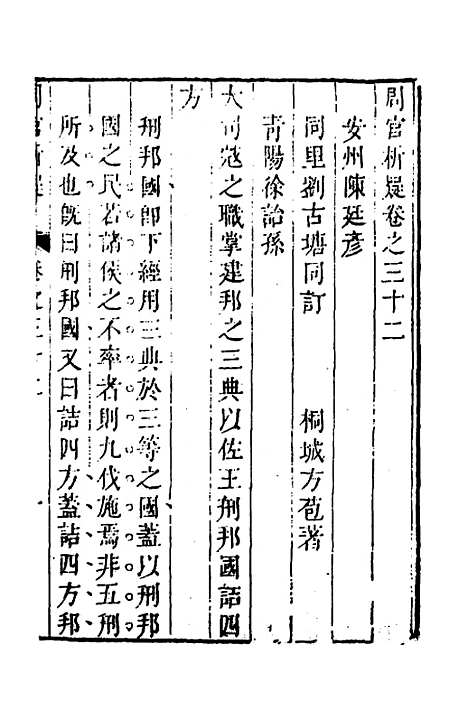 周官析疑卷之三十二
安州陳廷彥
同里劉古塘同訂 桐城方苞著
青陽徐詒孫
大司寇之職掌建邦之三典以佐王刑邦國詰四
方
刑邦國卽下經用三典於三等之國蓋以刑邦
國之民若諸侯之不率者則九伐施焉非五刑
所及也旣曰刑邦國又曰詰四方蓋詰四方邦
周官析疑 卷之三十二 一